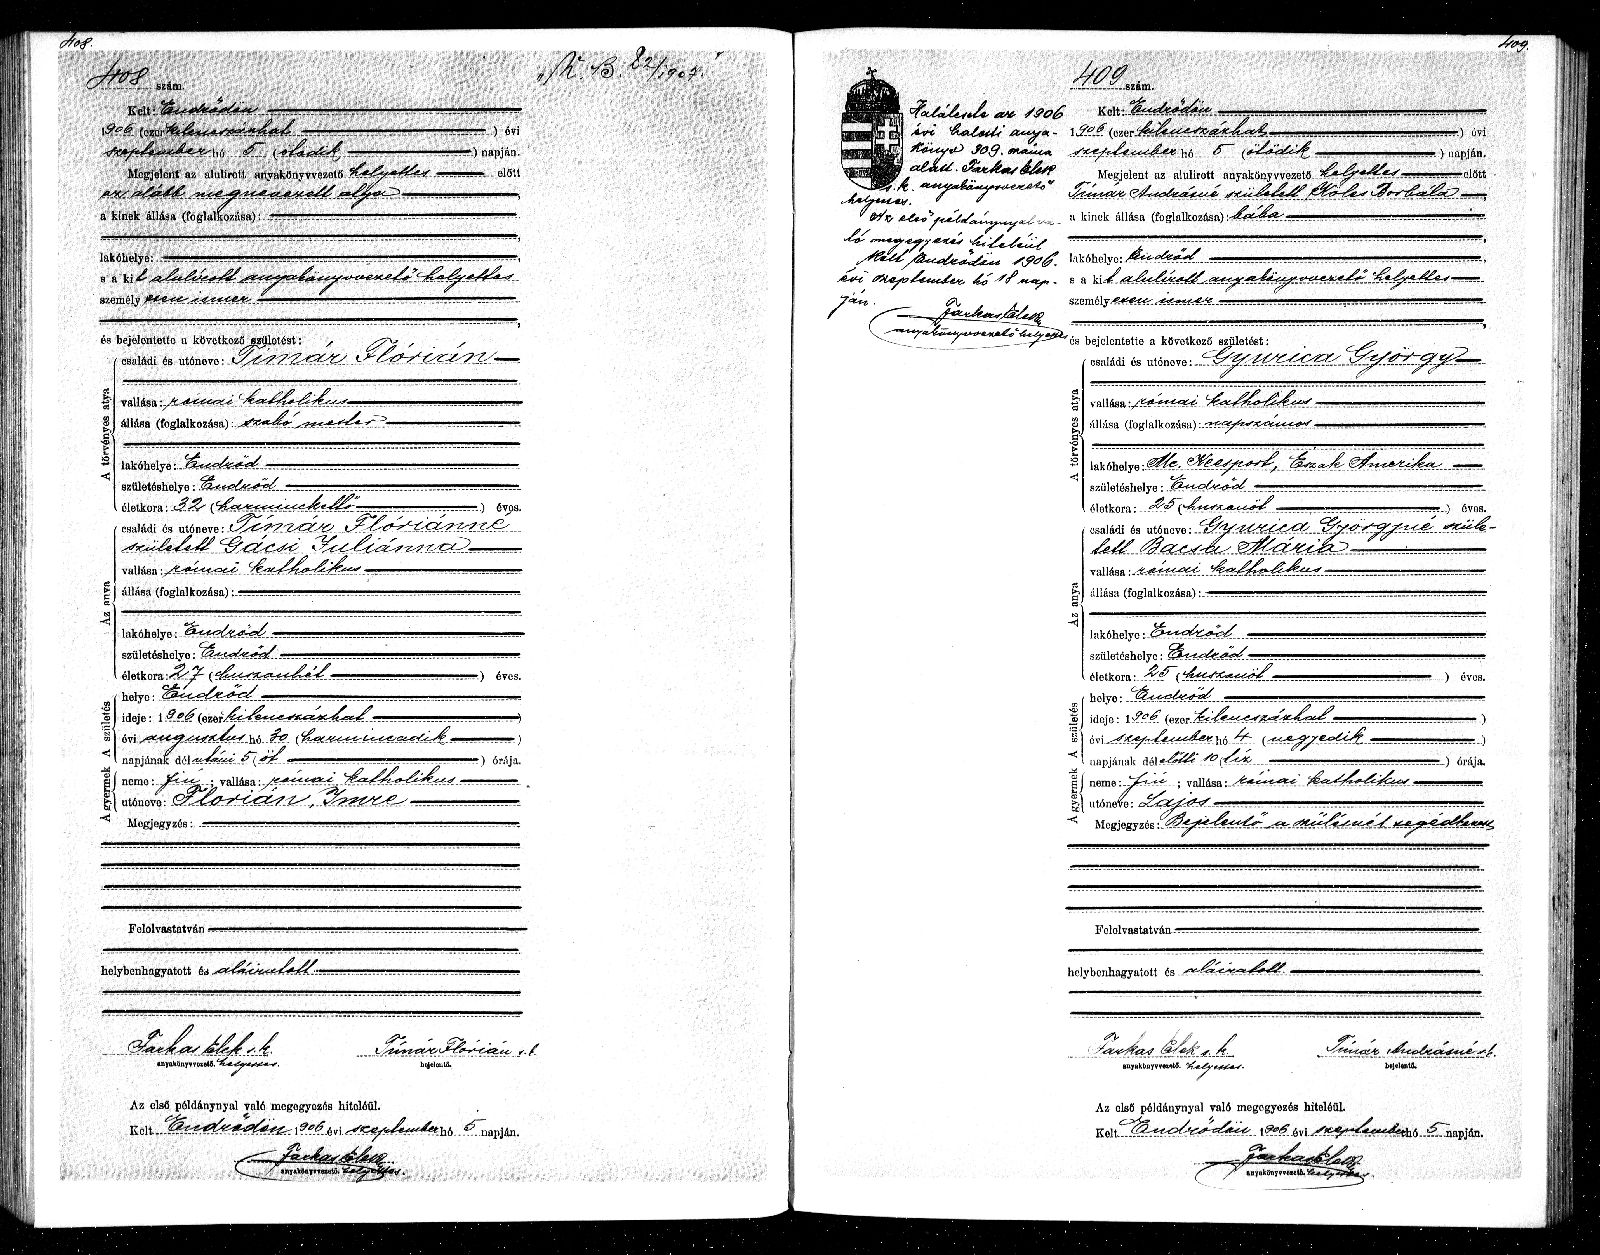 408.
408 szám.
"K. B. 22/1907."
Kelt Endrődön
1906 (ezer kilenczszázhat ) évi
szeptember hó 5 (ötödik ) napján.
Megjelent az alulirott anyakönyvvezető helyettes előtt
az alább megnevezett atya ,
a kinek állása (foglalkozása):
,
lakóhelye: ,
s a kit alulírott anyakönyvvezető helyettes
személyesen ismer
,
és bejelentette a következő születést:
A törvényes atya
családi és utóneve: Tímár Flórián
vallása: római katholikus
állása (foglalkozása): szabó mester
lakóhelye: Endrőd
születéshelye: Endrőd
életkora: 32 (harminckettő ) éves.
Az anya
családi és utóneve: Tímár Flóriánné
született Gácsi Juliánna
vallása: római katholikus
állása (foglalkozása):
lakóhelye: Endrőd
születéshelye: Endrőd
életkora: 27 (huszonhét ) éves.
A születés
helye: Endrőd
ideje: 1906 (ezer kilenczszázhat )
évi augusztus hó 30 (harmincadik )
napjának délutáni 5 (öt ) órája.
A gyermek
neme: fiú ; vallása: római katholikus
utóneve: Florián, Imre
Megjegyzés:
Felolvastatván
helybenhagyatott és aláiratott
Farkas Elek s. k. Tímár Flórián s. k.
anyakönyvvezető. helyettes. bejelentő.
Az első példánynyal való megegyezés hiteléül.
Kelt Endrődön 1906 évi szeptember hó 5 napján.
Farkas Elek
anyakönyvvezető. helyettes.
409.
Halálesete az 1906
évi halotti anya-
könyv 309. száma
alatt. Farkas Elek
s. k. anyakönyvvezető
helyettes.
Az első példánynyal va-
ló megegyezés hiteléül
Kelt Endrődön 1906.
évi szeptember hó 18 nap-
ján.
Farkas Elek
anyakönyvvezető helyettes
409 szám.
Kelt Endrődön
1906 (ezer kilenczszázhat ) évi
szeptember hó 5 (ötödik ) napján.
Megjelent az alulirott anyakönyvvezető helyettes előtt
Tímár Andrásné született Kóles Borbála ,
a kinek állása (foglalkozása): bába
,
lakóhelye: Endrőd ,
s a kit alulírott anyakönyvvezető helyettes
személyesen ismer
,
és bejelentette a következő születést:
A törvényes atya
családi és utóneve: Gyurica György
vallása: római katholikus
állása (foglalkozása): napszámos
lakóhelye: Mc. Keesport, Észak Amerika
születéshelye: Endrőd
életkora: 25 (huszonöt ) éves.
Az anya
családi és utóneve: Gyurica Györgyné szüle-
tett Bacsa Mária
vallása: római katholikus
állása (foglalkozása):
lakóhelye: Endrőd
születéshelye: Endrőd
életkora: 25 (huszonöt ) éves.
A születés
helye: Endrőd
ideje: 1906 (ezer kilenczszázhat )
évi szeptember hó 4 (negyedik )
napjának délelőtti 10 (tíz ) órája.
A gyermek
neme: fiú ; vallása: római katholikus
utóneve: Lajos
Megjegyzés: Bejelentő a szülésnél segédkezett
Felolvastatván
helybenhagyatott és aláiratott
Farkas Elek s. k. Tímár Andrásné s. k.
anyakönyvvezető. helyettes. bejelentő.
Az első példánynyal való megegyezés hiteléül.
Kelt Endrődön 1906 évi szeptember hó 5 napján.
Farkas Elek
anyakönyvvezető. helyettes.